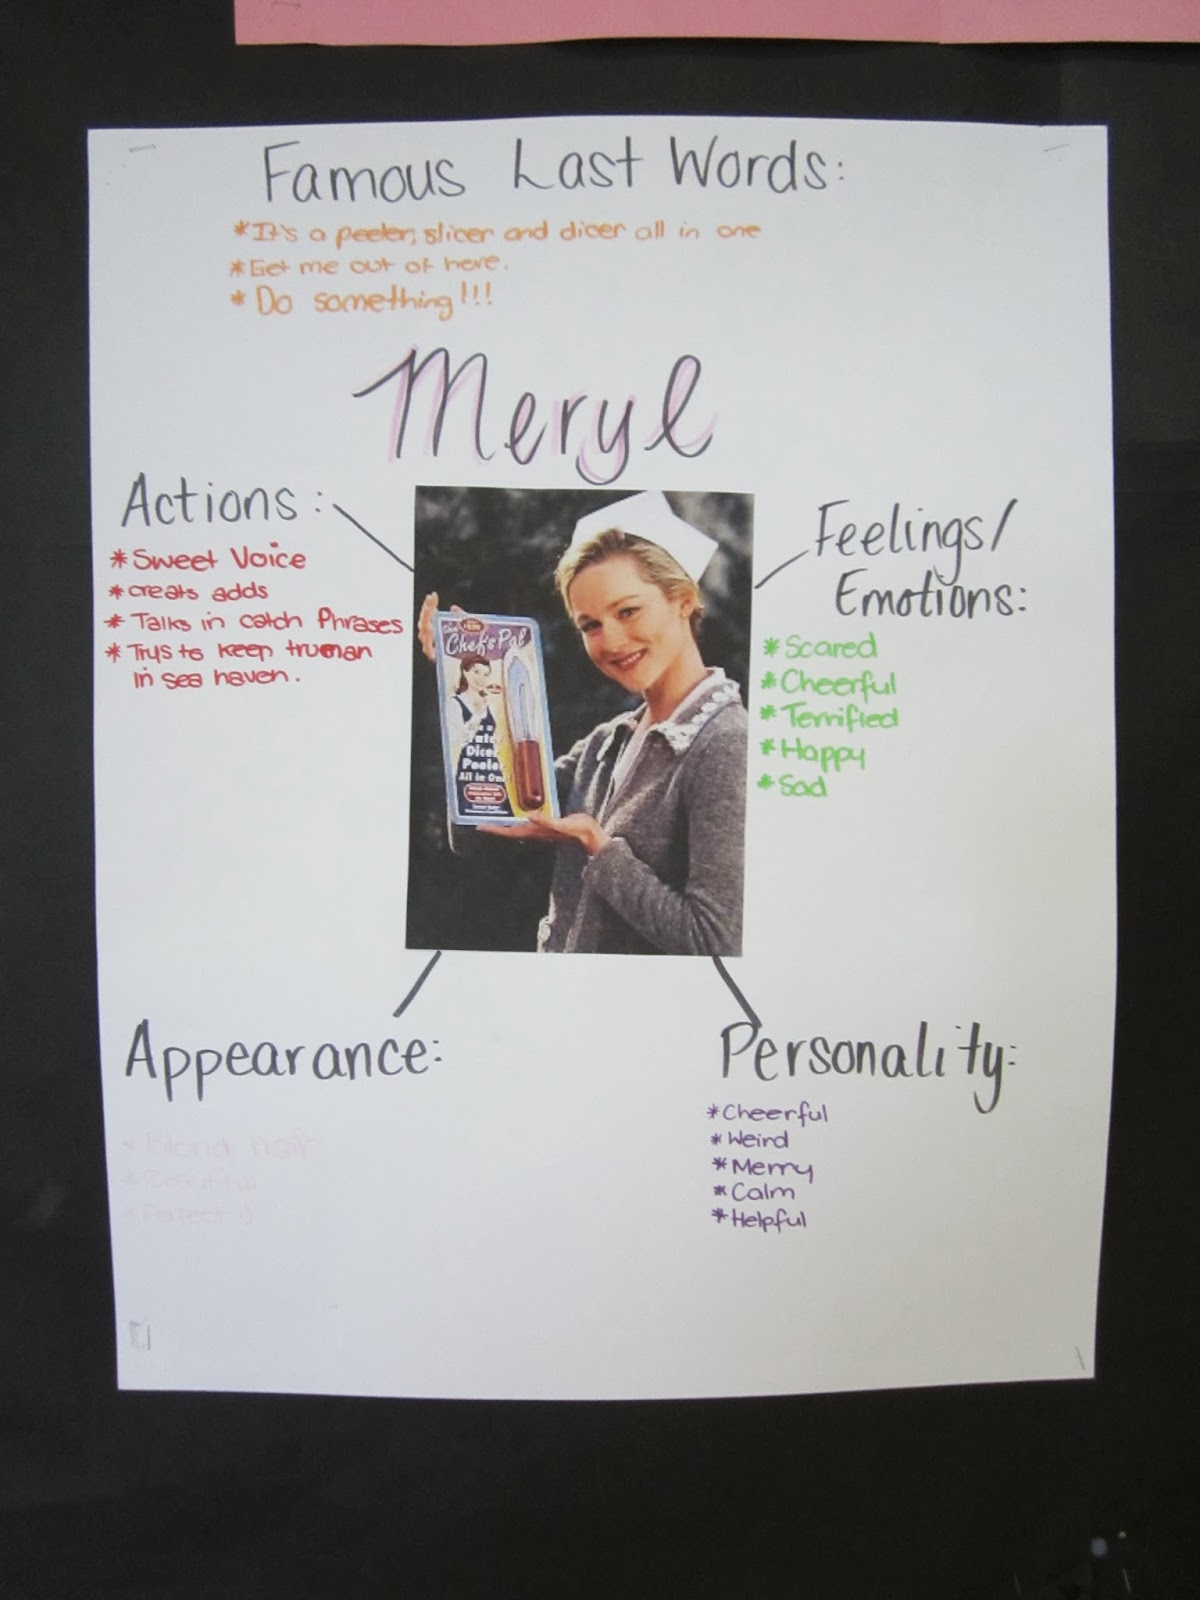 Famous Last Words:
*It's a peeler, slicer and dicer all in one
*Get me out of here.
*Do something!!!
Meryl
Actions:
*Sweet Voice
*creats adds
*Talks in catch Phrases
*Trys to keep truman
in sea haven.
Feelings/
Emotions:
*Scared
*Cheerful
*Terrified
*Happy
*Sad
Chef's Pal
Dicer
Peeler
All in One
Appearance:
*Blond hair
*Beautiful
*Perfect :)
Personality:
*Cheerful
*Weird
*Merry
*Calm
*Helpful